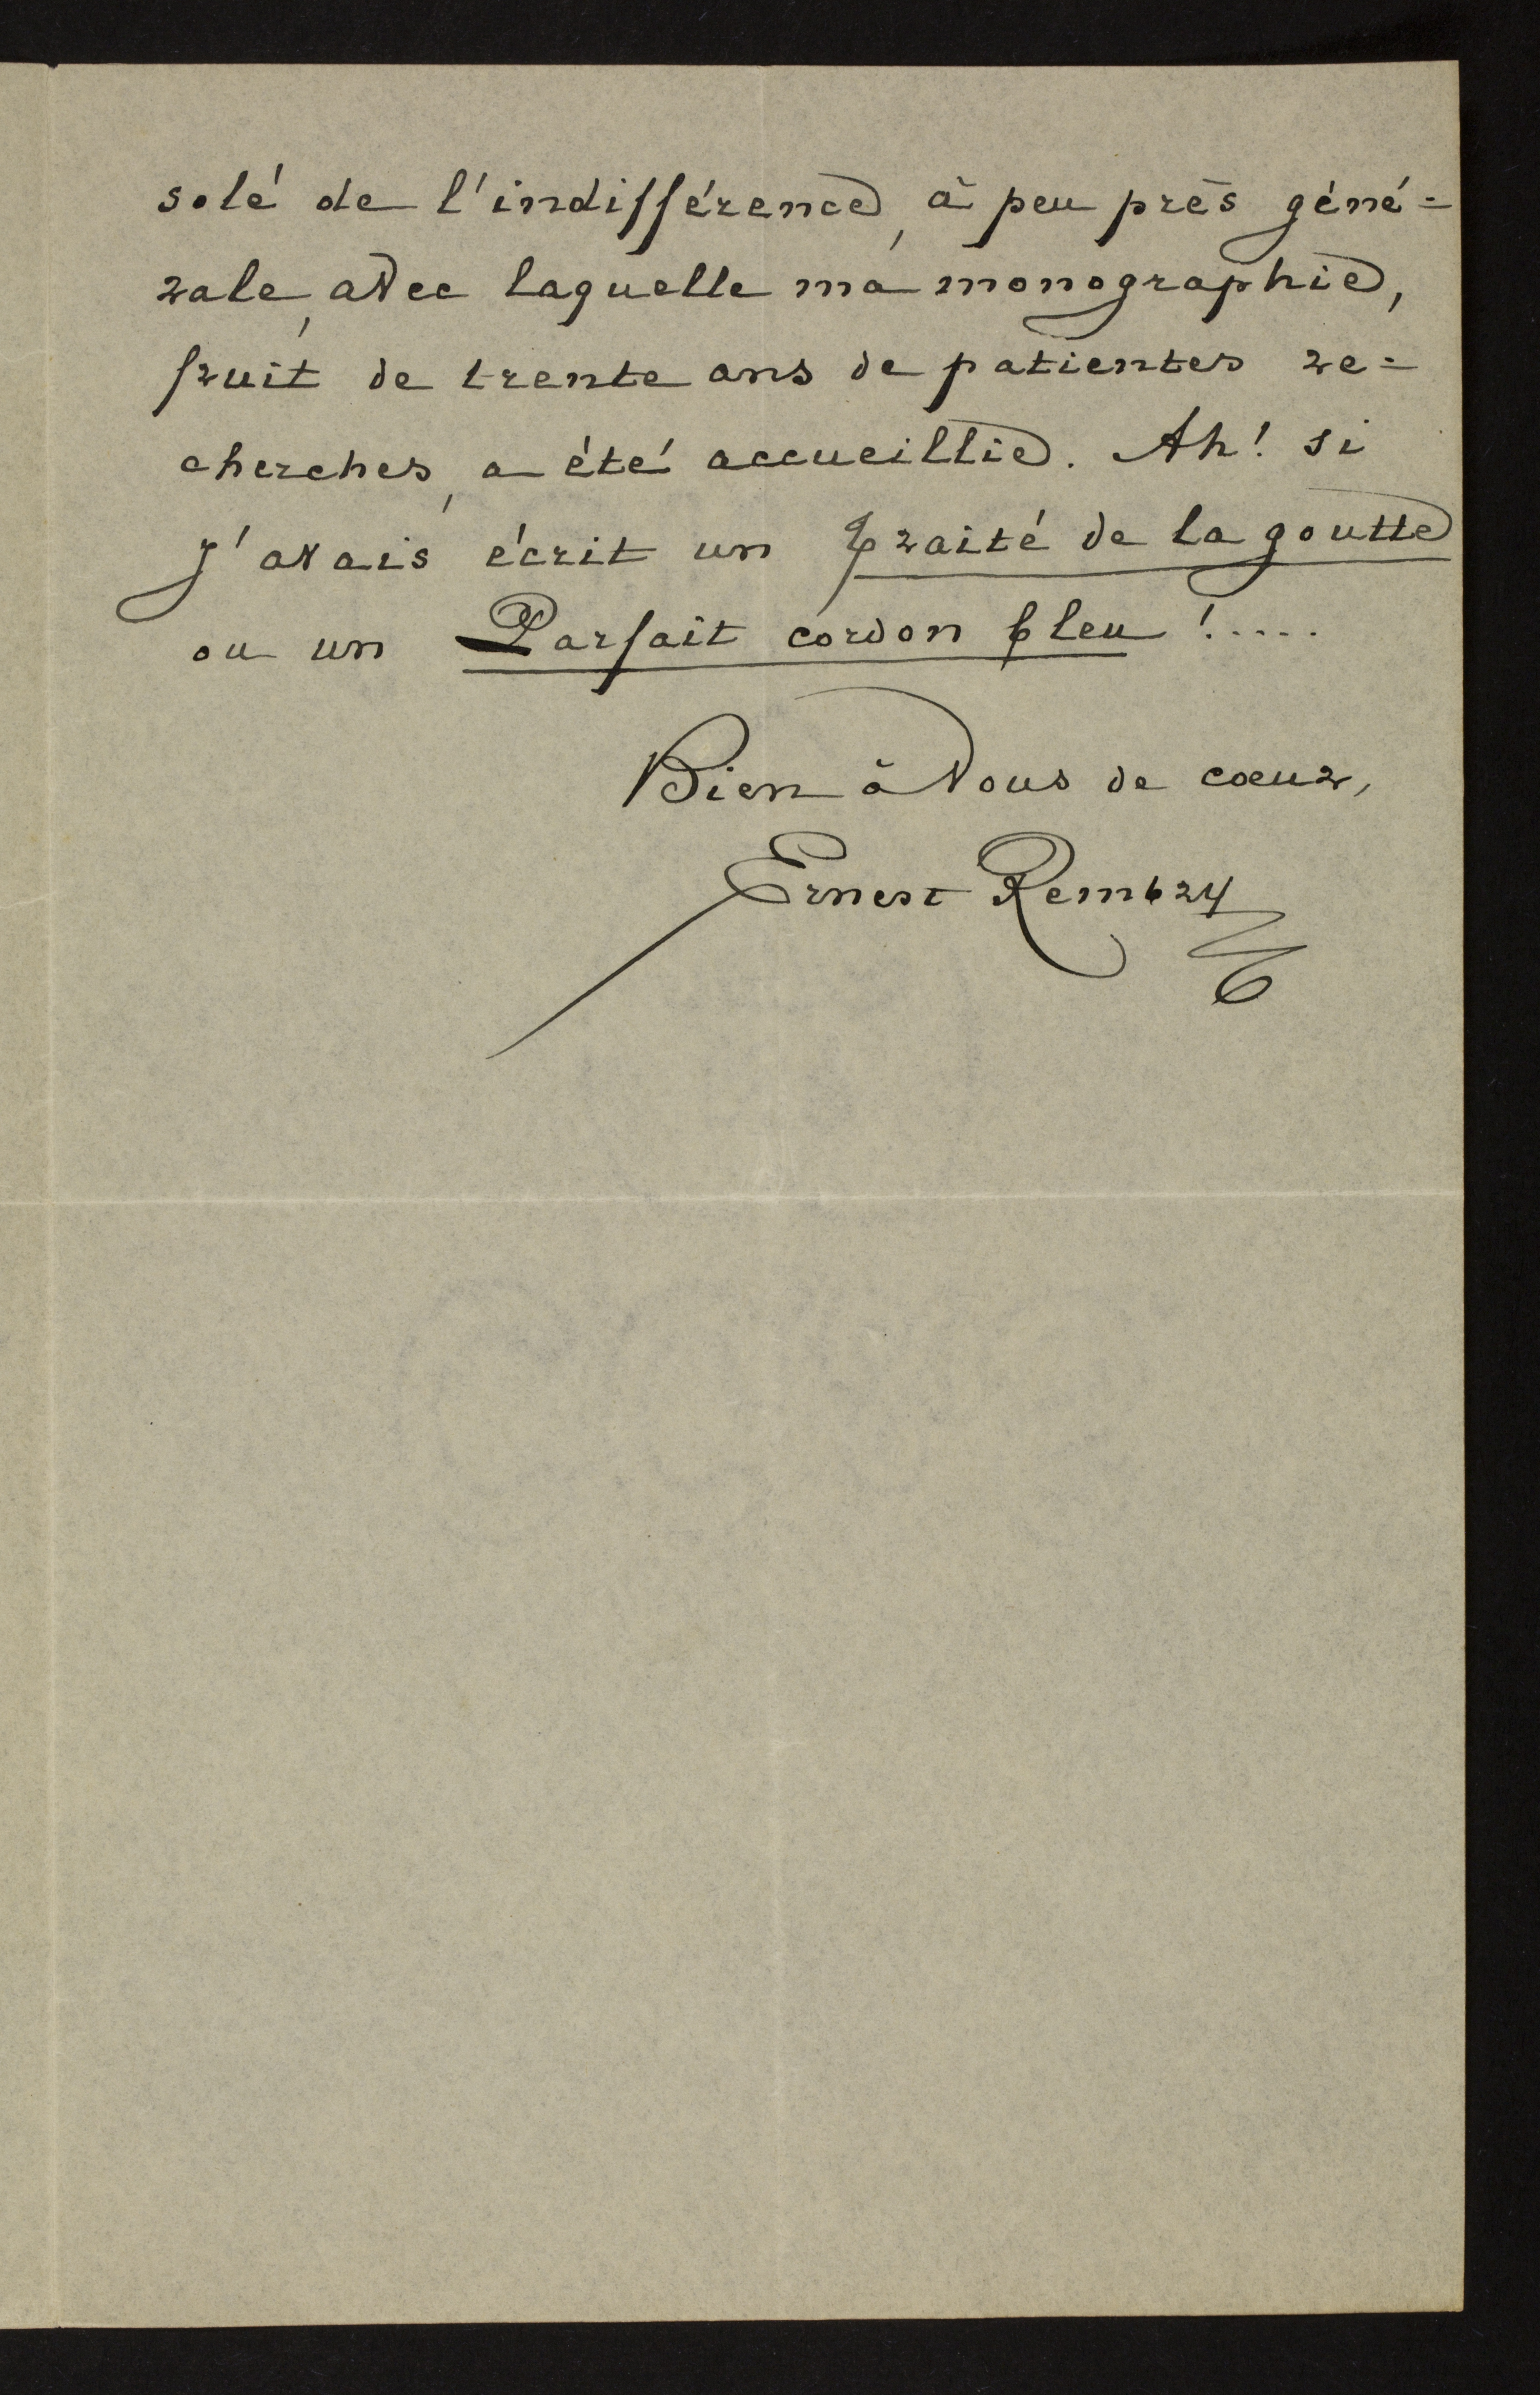 solé de l'indifférence, à peu près géné=
rale, avec laquelle ma monographie,
fruit de trente ans de patientes re=
cherches, a été accueillie. Ah! si
j'avais écrit un Traité de la goutte
ou un Parfait cordon bleu !.....
Bien à Vous de cœur,
Ernest Rembry